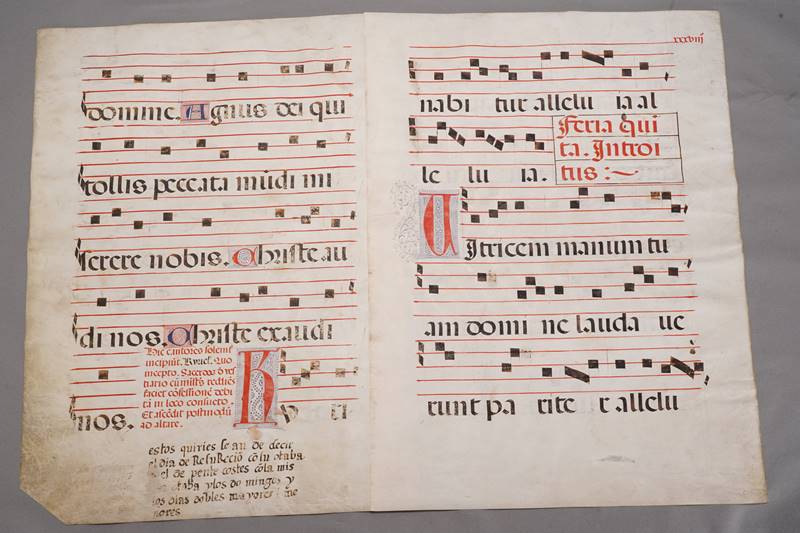 domine. Agnus dei qui
tollis peccata mūdi mi
serere nobis. Christe au
di nos. Christe exaudi
nos.
Hic cantores solemīt
incipiūt. Kyries. Quo
incepto. Sacerdos
nario cū
faciet confessionē debi
tā in loco consueto.
Et ascēdit postmodū
ad altare.
Ky ri
estos quiries se an de decir
el dia de Resureciō cō su otaba
y el de pente costes cō la mis
ma otaba y los do mingos y
los dias dobles mayores i me
nores
xxxviij
nabi tur allelu ia al
le lu ia.
Feria qui
ta. Introi
tus :~
Uitricem manum tu
am domi ne lauda ue
runt pa rite r allelu